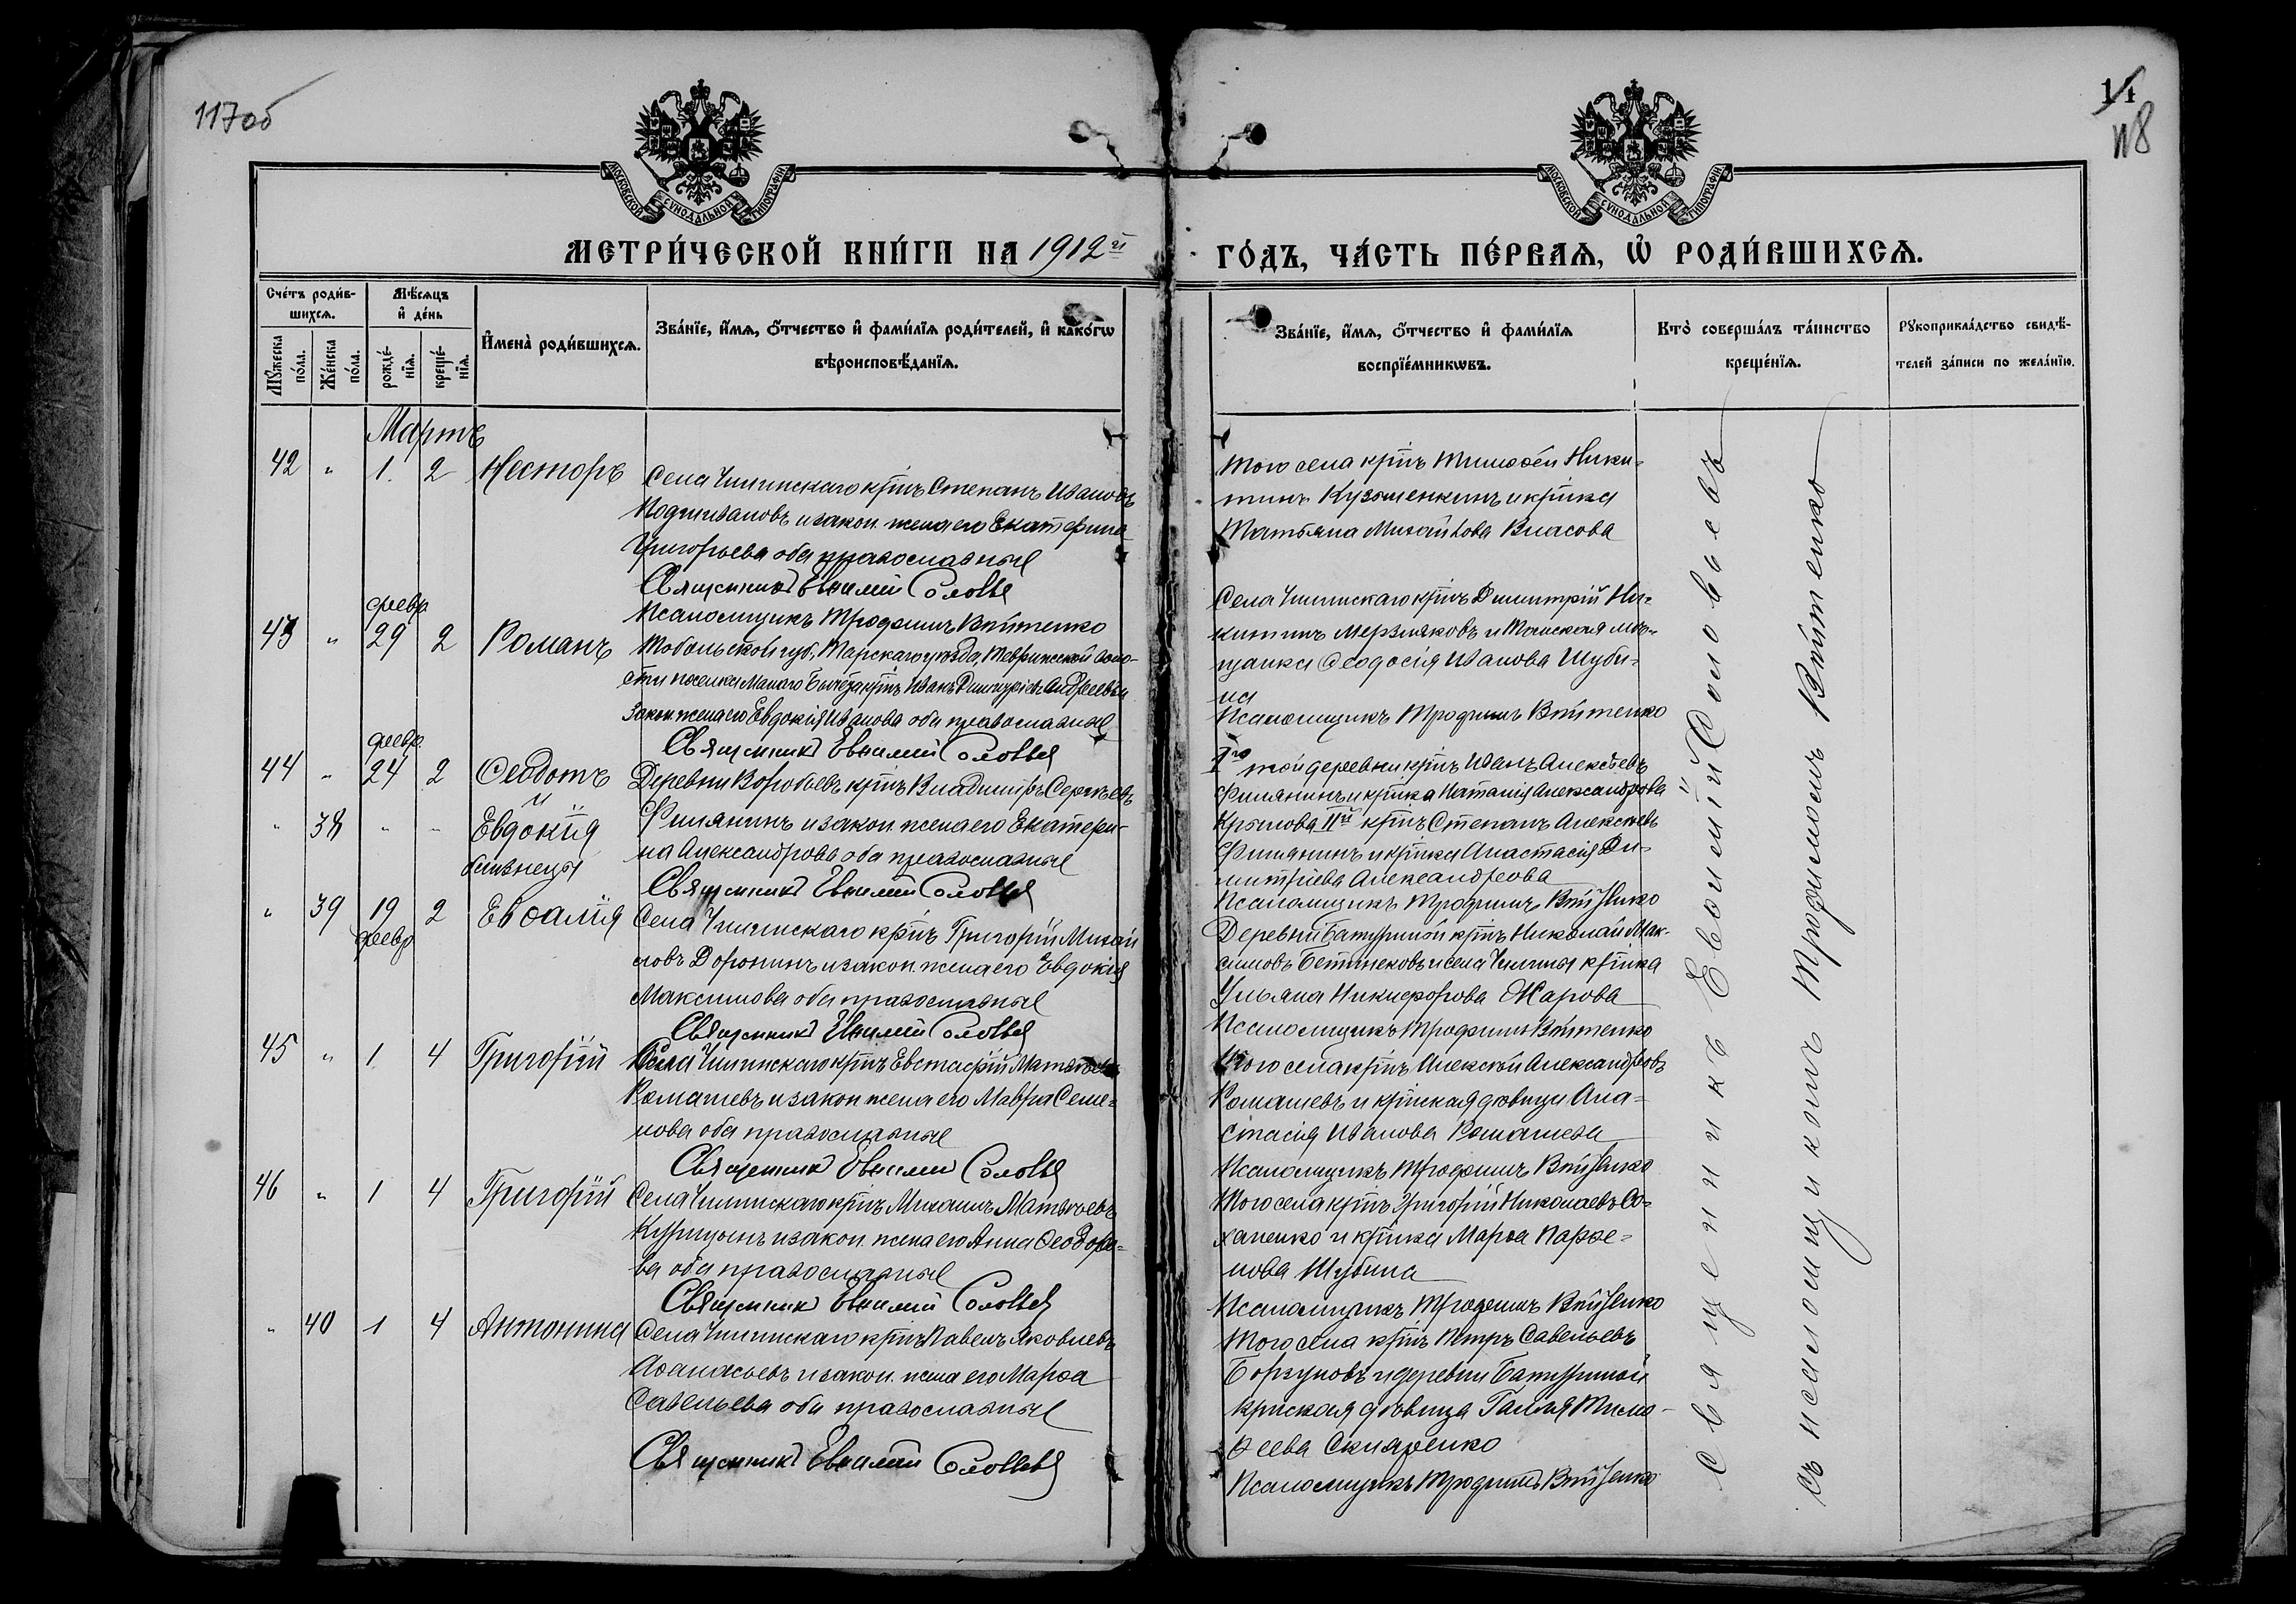 117об
14
118
МОСКОВСКОЙ СУНОДАЛЬНОЙ ТИПОГРАФІИ
МОСКОВСКОЙ СУНОДАЛЬНОЙ ТИПОГРАФІИ
МЕТРИ́ЧЕСКОЙ КНИ́ГИ НА 1912й ГО́ДЪ, ЧА́СТЬ ПЕ́РВАѦ, Ѡ҆ РОДИ́ВШИХСѦ.
Сче́тъ роди́в-
шихсѧ.
Мꙋ́жеска по́ла.
Же́нска по́ла.
Мѣ́сѧцъ
и҆ де́нь
рожде́-
нїѧ.
креще́-
нїѧ.
И҆мена̀ роди́вшихсѧ.
Зва́нїе, и҆́мѧ, ѻ҆́тчество и҆ фами́лїѧ роди́телей, и҆ како́гѡ
вѣроисповѣ́данїѧ.
Зва́нїе, и҆́мѧ, ѻ҆́тчество и҆ фами́лїѧ
воспрїе́мникѡвъ.
Кто̀ соверша́лъ та́инство
креще́нїѧ.
Рꙋкоприкла́дство свидѣ́-
телей за́писи по жела́нїю.
Мартъ
42 " 1. 2 Несторъ
Села Чилинскаго кр̃нъ Степанъ Ивановъ
Поджитановъ и закон. жена его Екатерина
Григорьева оба православные
Священникъ Евѳимій Соловьев
Того села кр̃нъ Тимоѳей Ники-
тинъ Кузьменкинъ и кр̃нка
Татьяна Михайлова Власова
февр.
43 " 29 2 Романъ
Псаломщикъ Трофимъ Вштенко
Тобольской губ., Тарскаго уѣзда, Тевризской воло-
сти поселка Малаго кр̃нъ Иванъ Андреевъ и
закон. жена его Евдокія Иванова оба православные
Священникъ Евѳимій Соловьев
Села Чилинскаго кр̃нъ Димитрій Ни-
китинъ Мерзляковъ и Томская мѣ-
щанка Ѳеодосія Иванова Шуби-
на
Псаломщикъ Трофимъ Вштенко
февр.
44 " 24 2 Ѳеодотъ
и
" 38 " " Евдокія
близнецы
Деревни Воробьевъ кр̃нъ Владиміръ Сергѣевъ
Филянинъ и закон. жена его Екатери-
на Александрова оба православные
Священникъ Евѳимій Соловьев
Iго той деревни кр̃нъ Иванъ Алексѣевъ
Филянинъ и кр̃нка Наталія Александрова
Крылова IIй кр̃нъ Степанъ Алексѣевъ
Филянинъ и кр̃нка Анастасія Ди-
митріева Александрова
Псаломщикъ Трофимъ Вштенко
" 39 19 2 Евѳалія
февр.
Села Чилинскаго кр̃нъ Григорій Михай
ловъ Доронинъ и закон. жена его Евдокія
Максимова оба православные
Священникъ Евѳимій Соловьев
Деревни Батуриной кр̃нъ Николай Мак-
симовъ и села Чилина кр̃нка
Ульяна Никифорова Жарова
Псаломщикъ Трофимъ Вштенко
45 " 1 4 Григорій
Села Чилинскаго кр̃нъ Евстафій Матвѣевъ
Ромашевъ и закон. жена его Мавра Семе-
нова оба православные
Священникъ Евѳимій Соловьев
Того села кр̃нъ Алексѣй Александровъ
Ромашевъ и кр̃нская дѣвица Ана-
стасія Иванова Ромашева
Псаломщикъ Трофимъ Вштенко
46 " 1 4 Григорій
Села Чилинскаго кр̃нъ Михаилъ Матвѣевъ
Курицынъ и закон. жена его Анна Ѳеодоро-
ва оба православные
Священникъ Евѳимій Соловьев
Того села кр̃нъ Григорій Николаевъ Со-
хаченко и кр̃нка Марѳа Парѳе-
нова Шубина
Псаломщикъ Трофимъ Вштенко
" 40 1 4 Антонина
Села Чилинскаго кр̃нъ Павелъ Яковлевъ
Аѳанасьевъ и закон. жена его Марѳа
Савельева оба православные
Священникъ Евѳимій Соловьев
Того села кр̃нъ Петръ Савельевъ
Борзуновъ и деревни Батуриной
кр̃нская дѣвица Галія Тимо-
ѳеева Скляренко
Псаломщикъ Трофимъ Вштенко
Священникъ Евѳимій Соловьевъ
съ псаломщикомъ Трофимомъ Вштенко